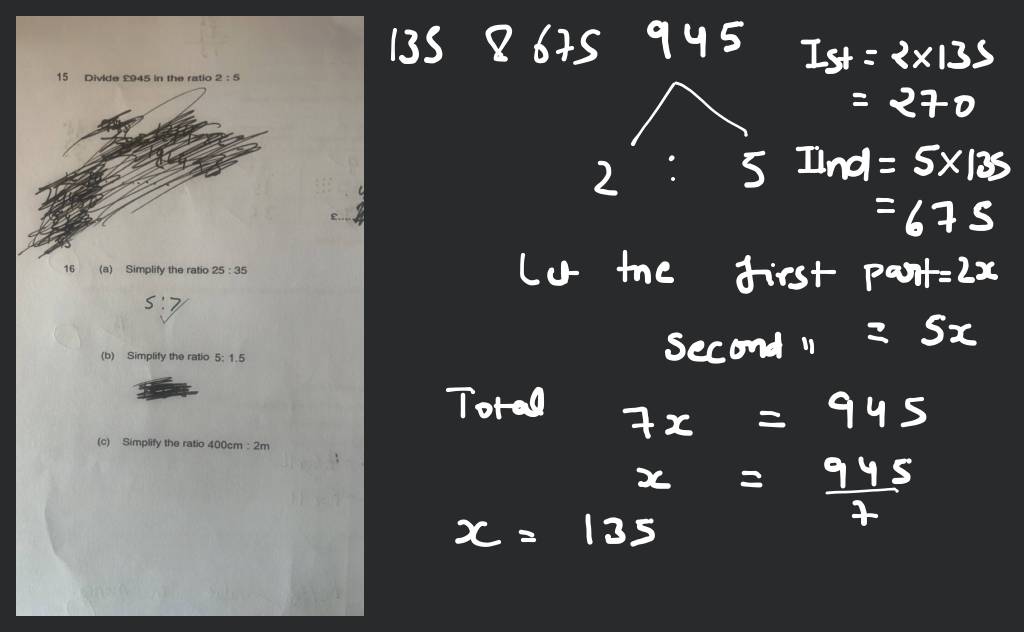 15 Divide £945 in the ratio 2 : 5
£....
16 (a) Simplify the ratio 25 : 35
5:7
(b) Simplify the ratio 5: 1.5
(c) Simplify the ratio 400cm : 2m
135 8 675 945
2 : 5
Ist = 2x135
= 270
IInd = 5x135
= 675
Let the first part=2x
Second " = 5x
Total 7x = 945
x = 945
7
x = 135